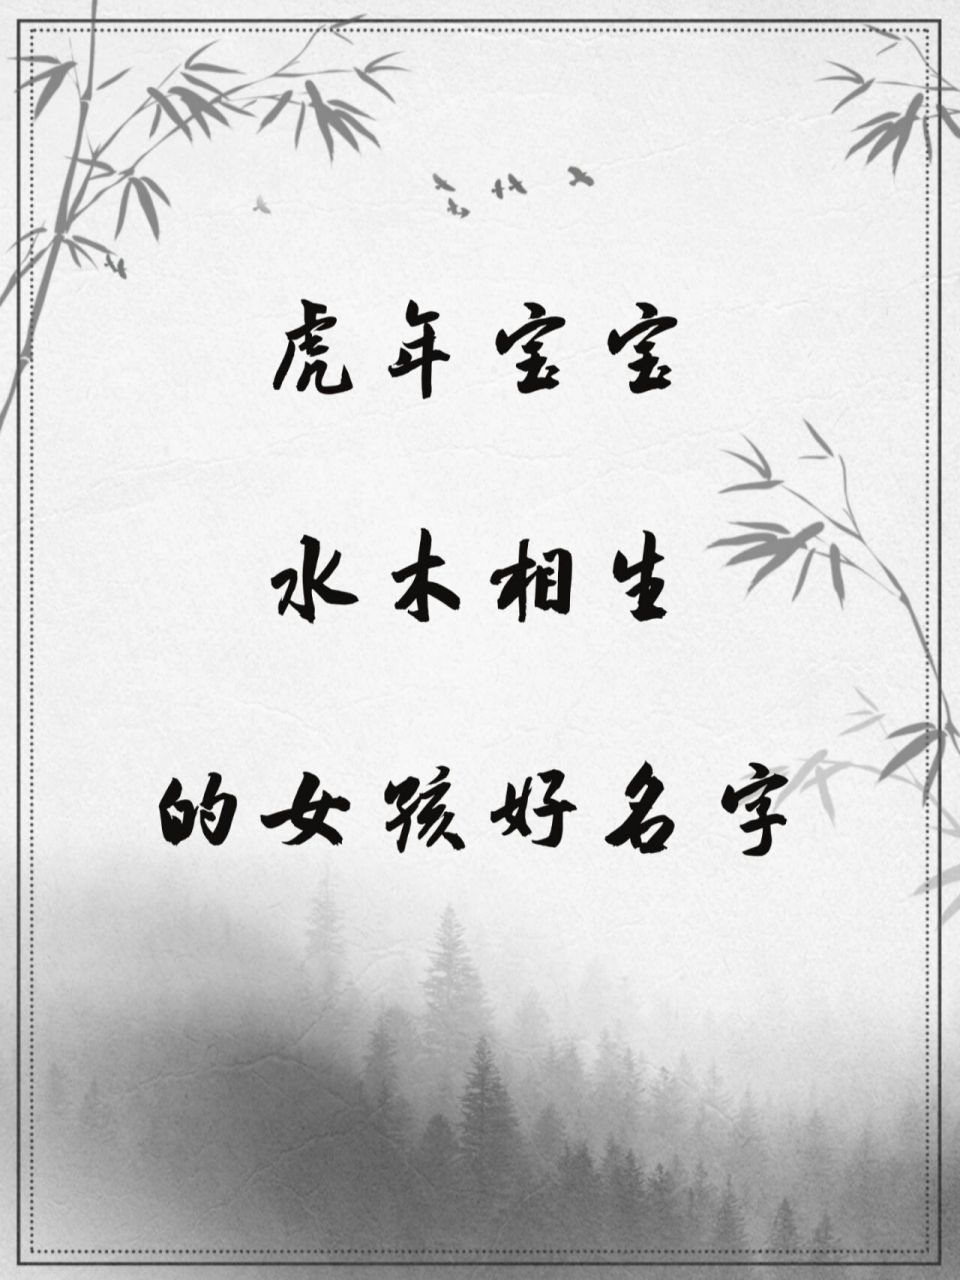 虎年宝宝
水木相生
的女孩好名字